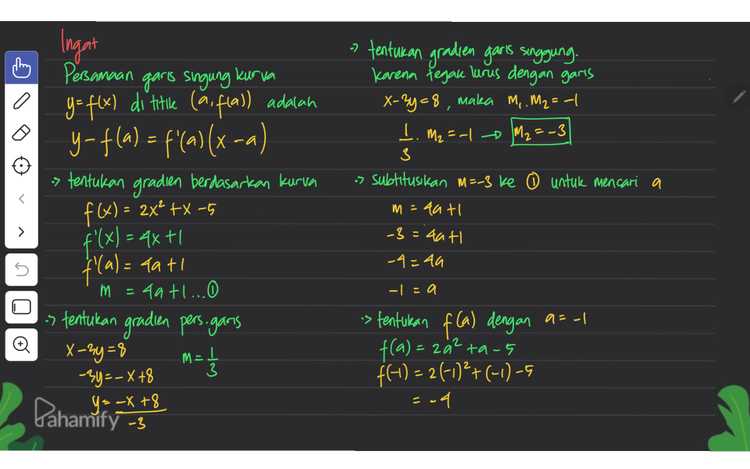 Ingat
Persamaan garis singung kurva
y=f(x) di titik (a,f(a)) adalah
y-f(a) = f'(a)(x-a)
-> tentukan gradien berdasarkan kurva
f(x) = 2x² +x -5
f'(x) = 4x +1
f'(a) = 4a +1
m = 4a +1...①
-> tentukan gradien pers.garis
x-3y=8
m = 1/3
-3y=-x+8
y = -x +8
-3
Pahamify
-> tentukan gradien garis singgung.
karena tegak lurus dengan garis
x-3y=8, maka m₁.m₂=-1
1/3 . m₂=-1 → m₂=-3
-> Subtitusikan m=-3 ke ① untuk mencari a
m = 4a+1
-3 = 4a+1
-4=4a
-1=a
-> tentukan f(a) dengan a=-1
f(a) = 2a² +a-5
f(-1) = 2(-1)²+(-1)-5
= -4